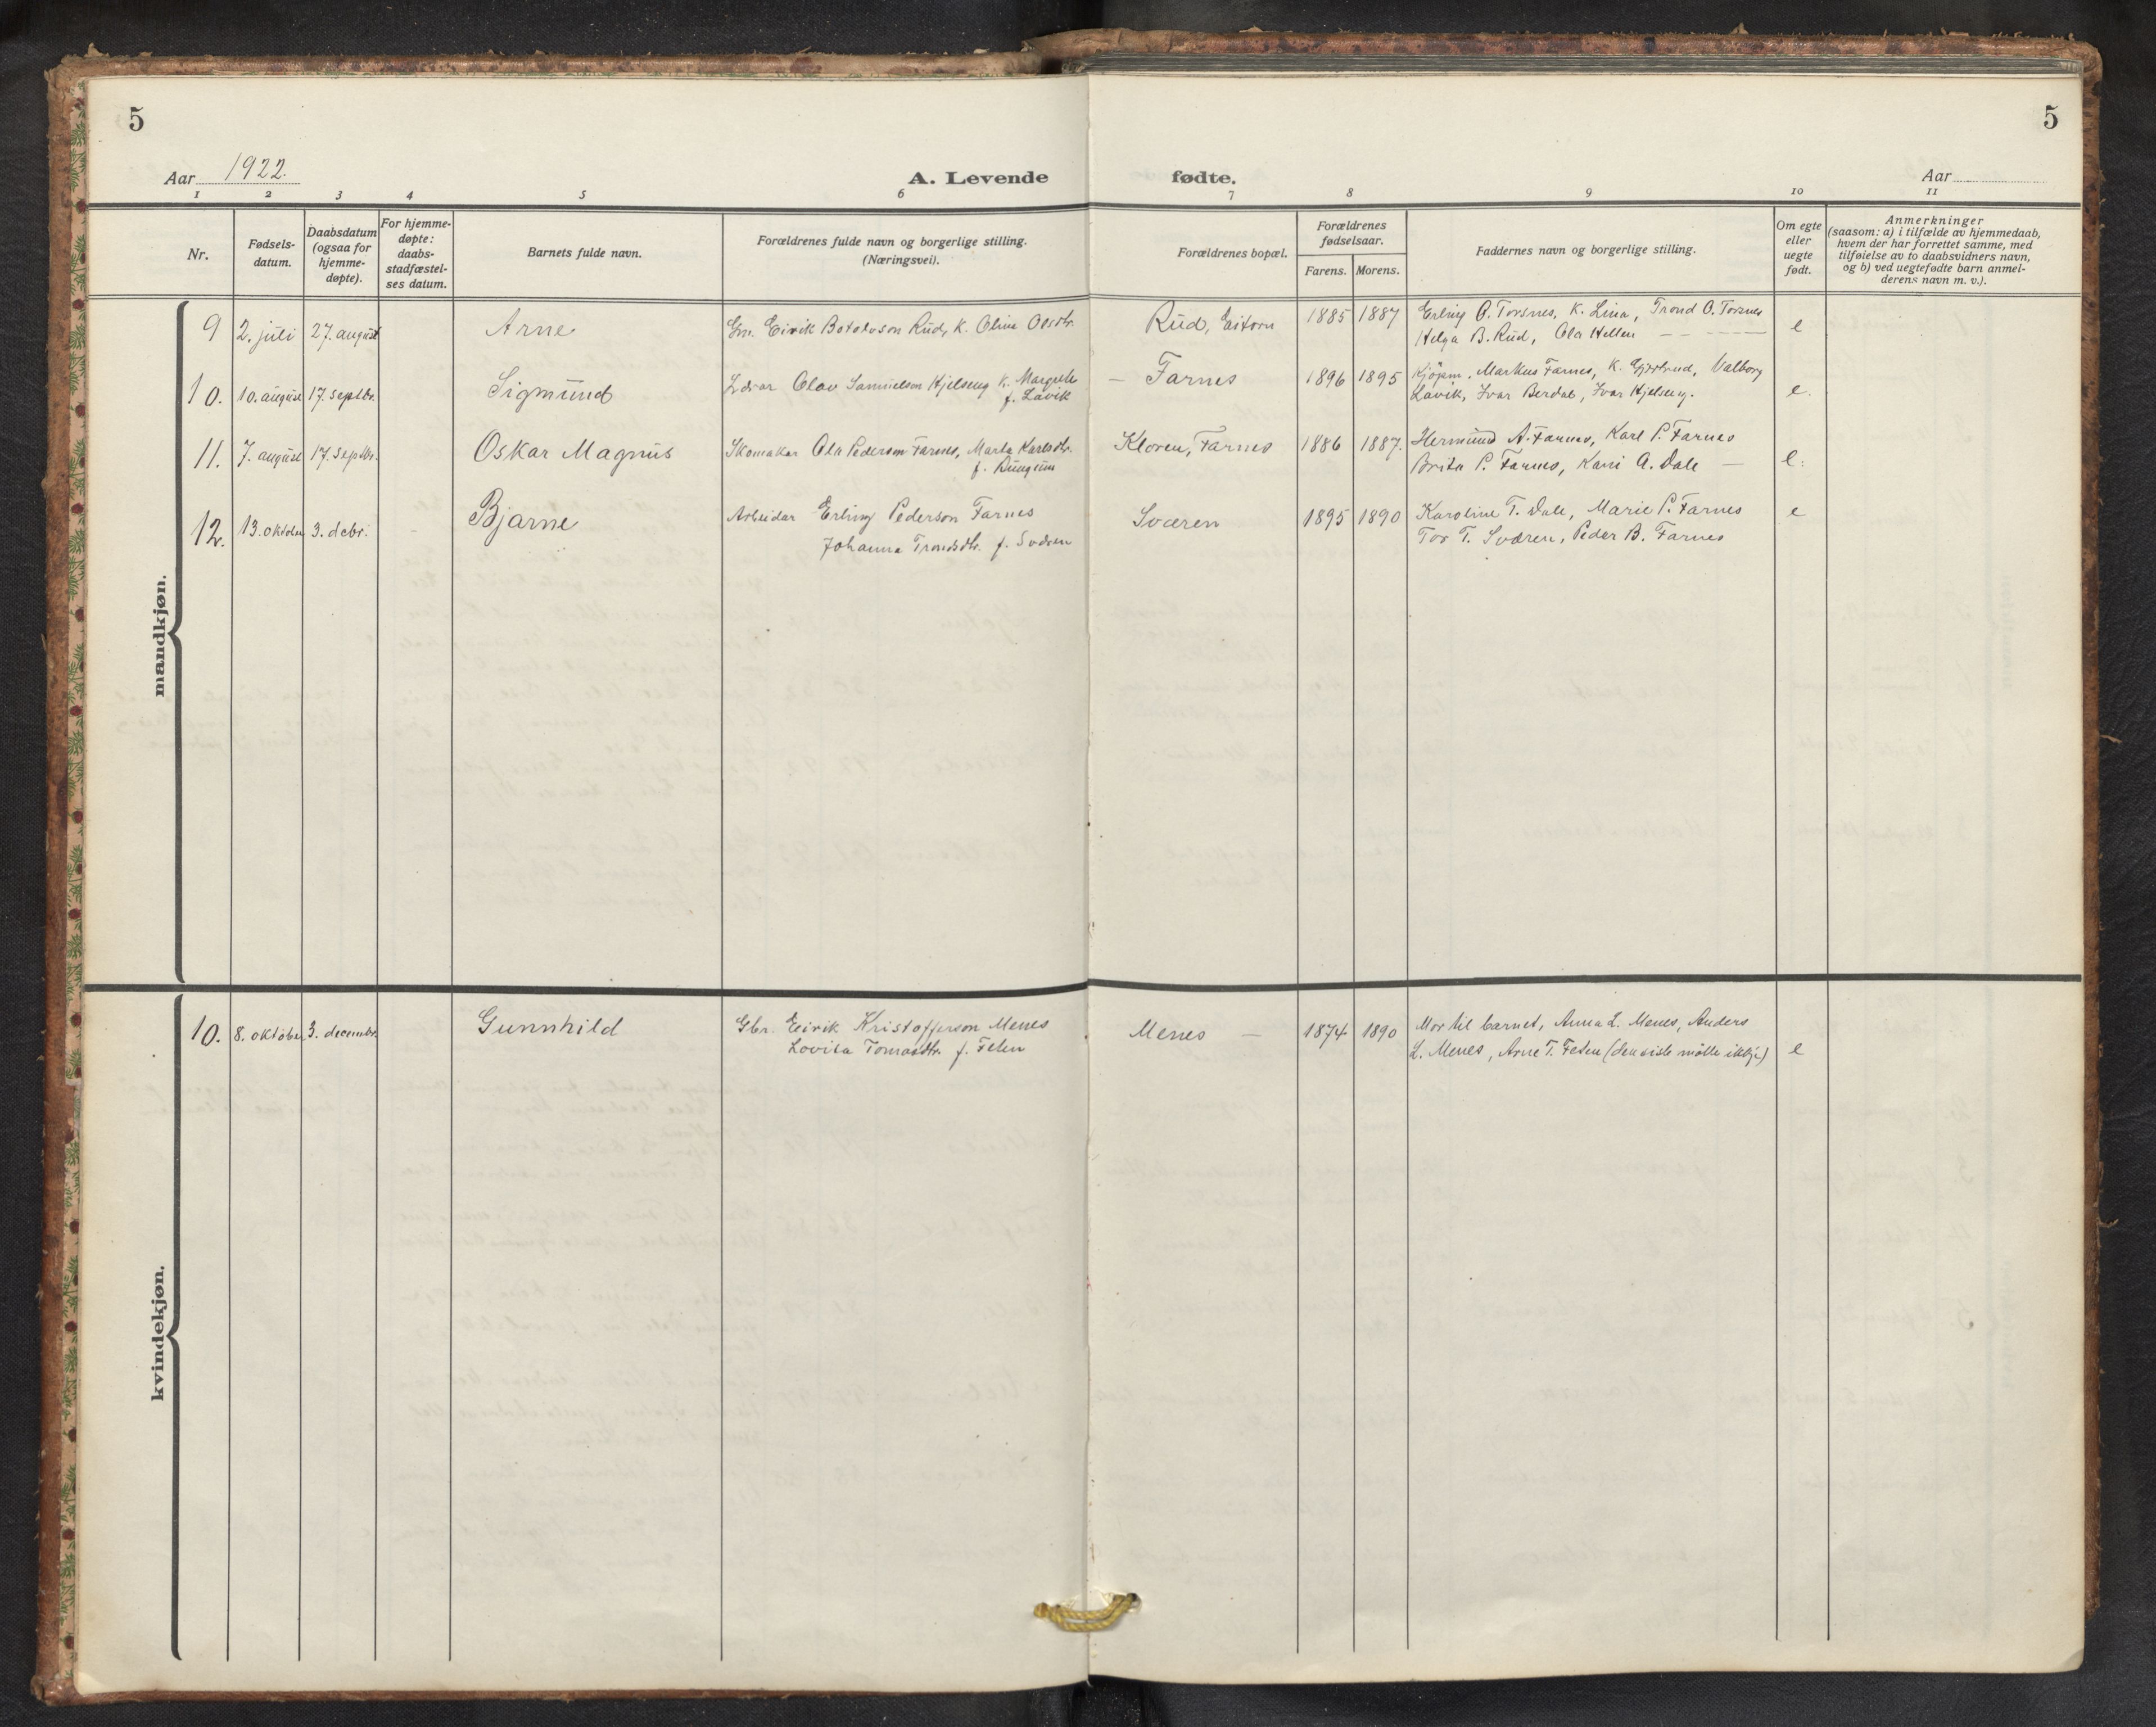 5
5
Aar 1922.
A. Levende fødte.
Aar
1 2 3 4 5 6 7 8 9 10 11
Nr.
Fødsels-
datum.
Daabsdatum
(ogsaa for
hjemme-
døpte).
For hjemme-
døpte:
daabs-
stadfæstel-
ses datum.
Barnets fulde navn.
Forældrenes fulde navn og borgerlige stilling.
(Næringsvei).
Forældrenes bopæl.
Forældrenes
fødselsaar.
Farens. Morens.
Faddernes navn og borgerlige stilling.
Om egte
eller
uegte
født.
Anmerkninger
(saasom: a) i tilfælde av hjemmedaab,
hvem der har forrettet samme, med
tilføielse av to daabsvidners navn,
og b) ved uegtefødte barn anmel-
derens navn m. v.).
mandkjøn.
9 2. juli 27. august Arne Gm. Eirik Botolvson Rud, K. Olina Olsdtr. Rud, Eitorn 1885 1887 Erling O. Torsnes, K. Lina, Trond O. Torsnes
Helga B. Rud, Ola Hellen — e
10. 10. august 17. septbr. Sigmund Lærar Olav Samuelson Hjelseng K. Margrete
f. Lavik
– Farnes 1896 1895 Kjøpm. Markus Farnes, K. Gjertrud, Valborg
Lavik, Ivar Berdal, Ivar Hjelseng. e.
11. 7. august 17. septbr. Oskar Magnus Skomakar Ola Pederson Farnes, Marta Karlsdtr.
f. Rungum
Kloren, Farnes 1886 1887. Hermund A. Farnes, Karl P. Farnes
Brita P. Farnes, Kari A. Dale — e.
12. 13. oktober 3. debr. Bjarne Arbeidar Erling Pederson Farnes
Johanna Trondsdtr. f. Sværen
Sværen 1895 1890 Karoline T. Dale, Marie P. Farnes e
Tor T. Sværen, Peder B. Farnes
kvindekjøn.
10. 8. oktober 3. decembr. Gunnhild Gbr. Eirik Kristofferson Menes
Lovisa Tomasdtr. f. Feten
Menes — 1874 1890 Mor til barnet, Anna L. Menes, Anders
L. Menes, Arne T. Feten (den siste møtte ikkje) e